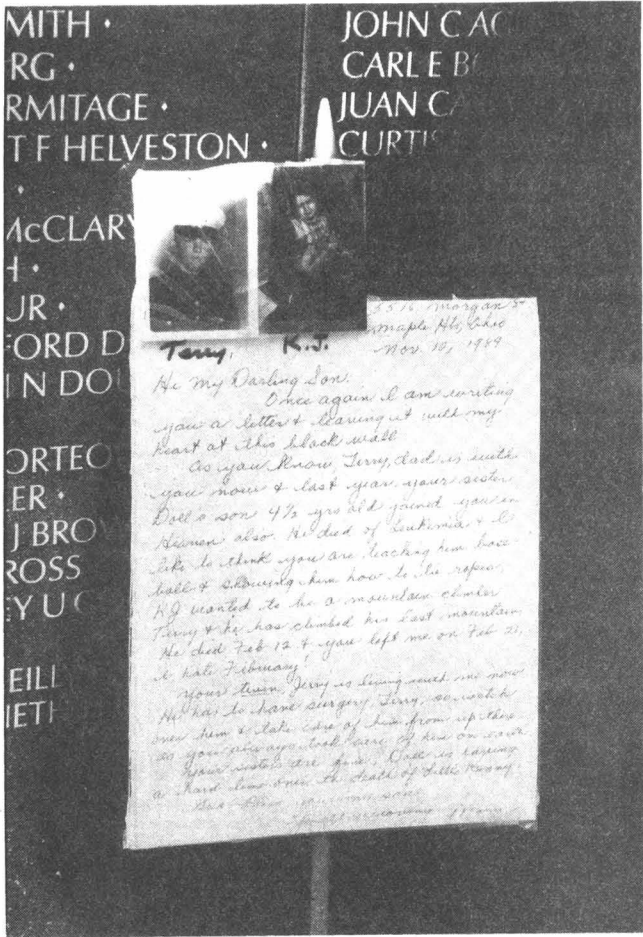 MITH •
RG •
RMITAGE •
T F HELVESTON •
•
McCLARY
H •
UR •
FORD D
N DOU
ORTEO
ER •
J BRO
ROSS
EY U
EILL
ETH
JOHN C AC
CARL E B
JUAN CA
CURTIS
Terry, K.J.
Morgan St
Maple Hts, Ohio
Nov. 10, 1989
Hi My Darling Son,
Once again I am writing
you a letter & leaving it with my
heart at this black wall
As you know, Terry, dad is with
you now & last year your sister
Doll's son 4½ yrs old joined you in
Heaven also. He died of Leukemia & I
like to think you are teaching him base
ball & showing him how to tie ropes.
K.J. wanted to be a mountain climber
Terry & he has climbed his last mountain
He died Feb 12 & you left me on Feb 21,
I hate February!
Your twin, Jerry is living with me now
He has to have surgery, Terry, so watch
over him & take care of him from up there
as you always took care of him on earth
Your sisters are fine. Doll is having
a hard time over the death of little Kenny.
son